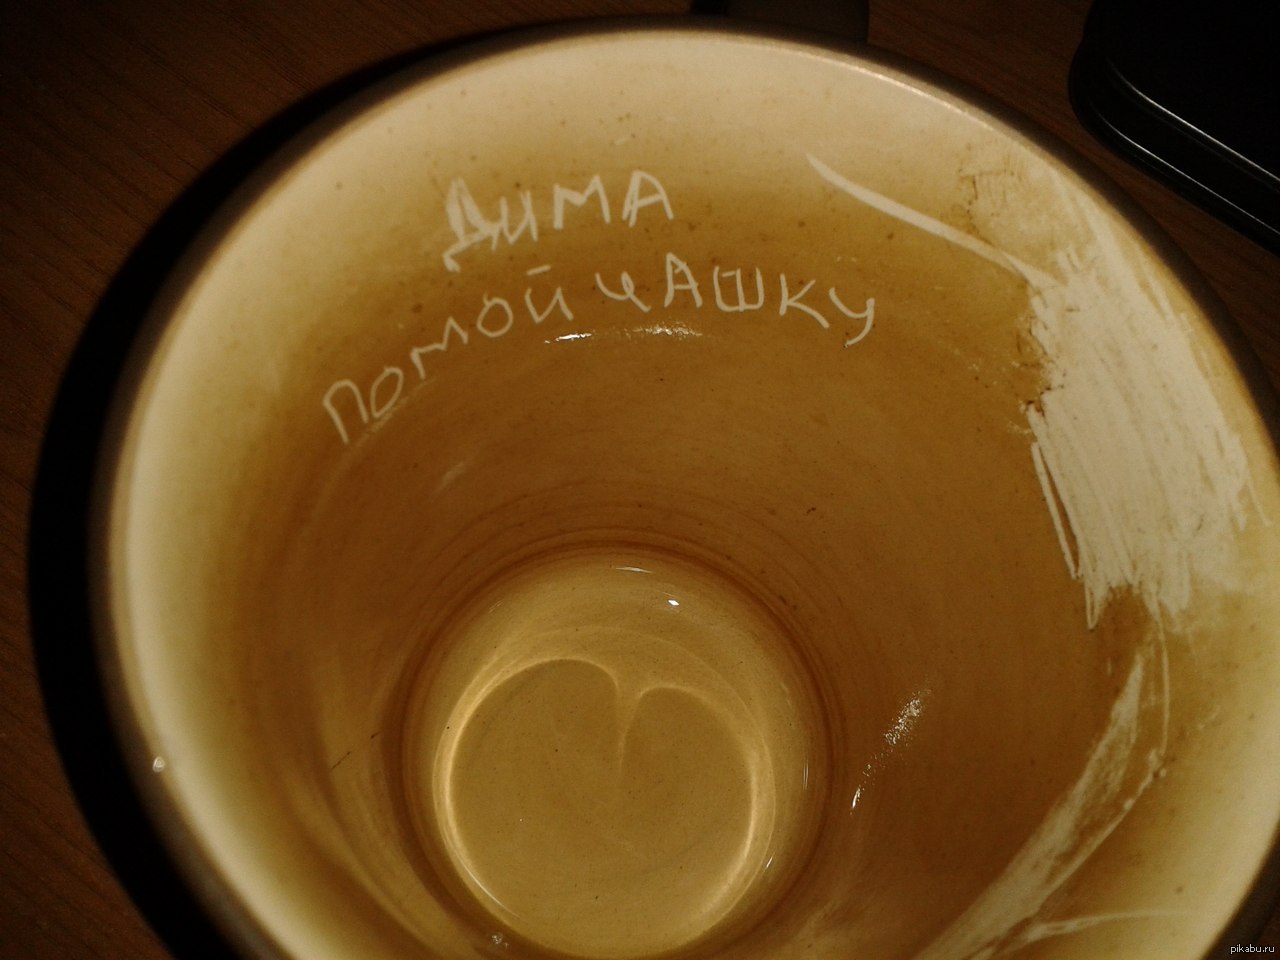 ДИМА
ПОМОЙ ЧАШКУ
pikabu.ru